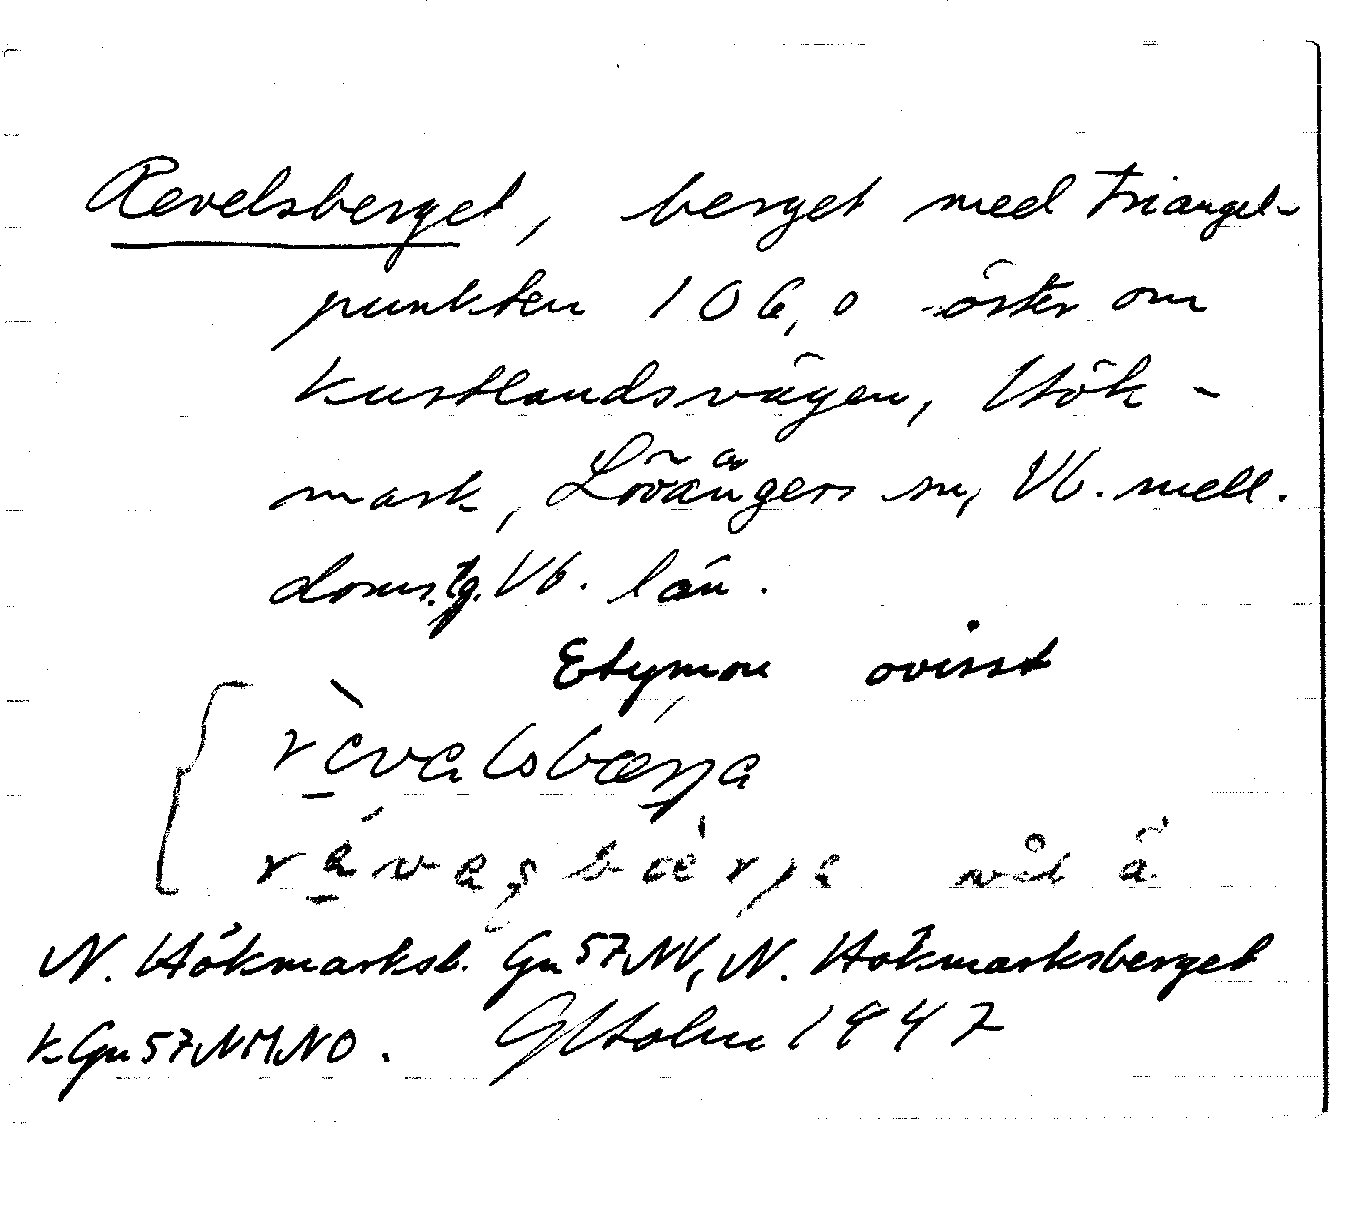 Revelsberget, berget med Triangel-
punkten 106,0 öster om
kustlandsvägen, Hök-
mark, Lövångers sn, Vb. mell.
doms.tg. Vb. län.
Etymon ovisst
N. Hökmarksb. Gn 57NV, N. Hökmarksberget
k Gn 57NMNO. G Holm 1947